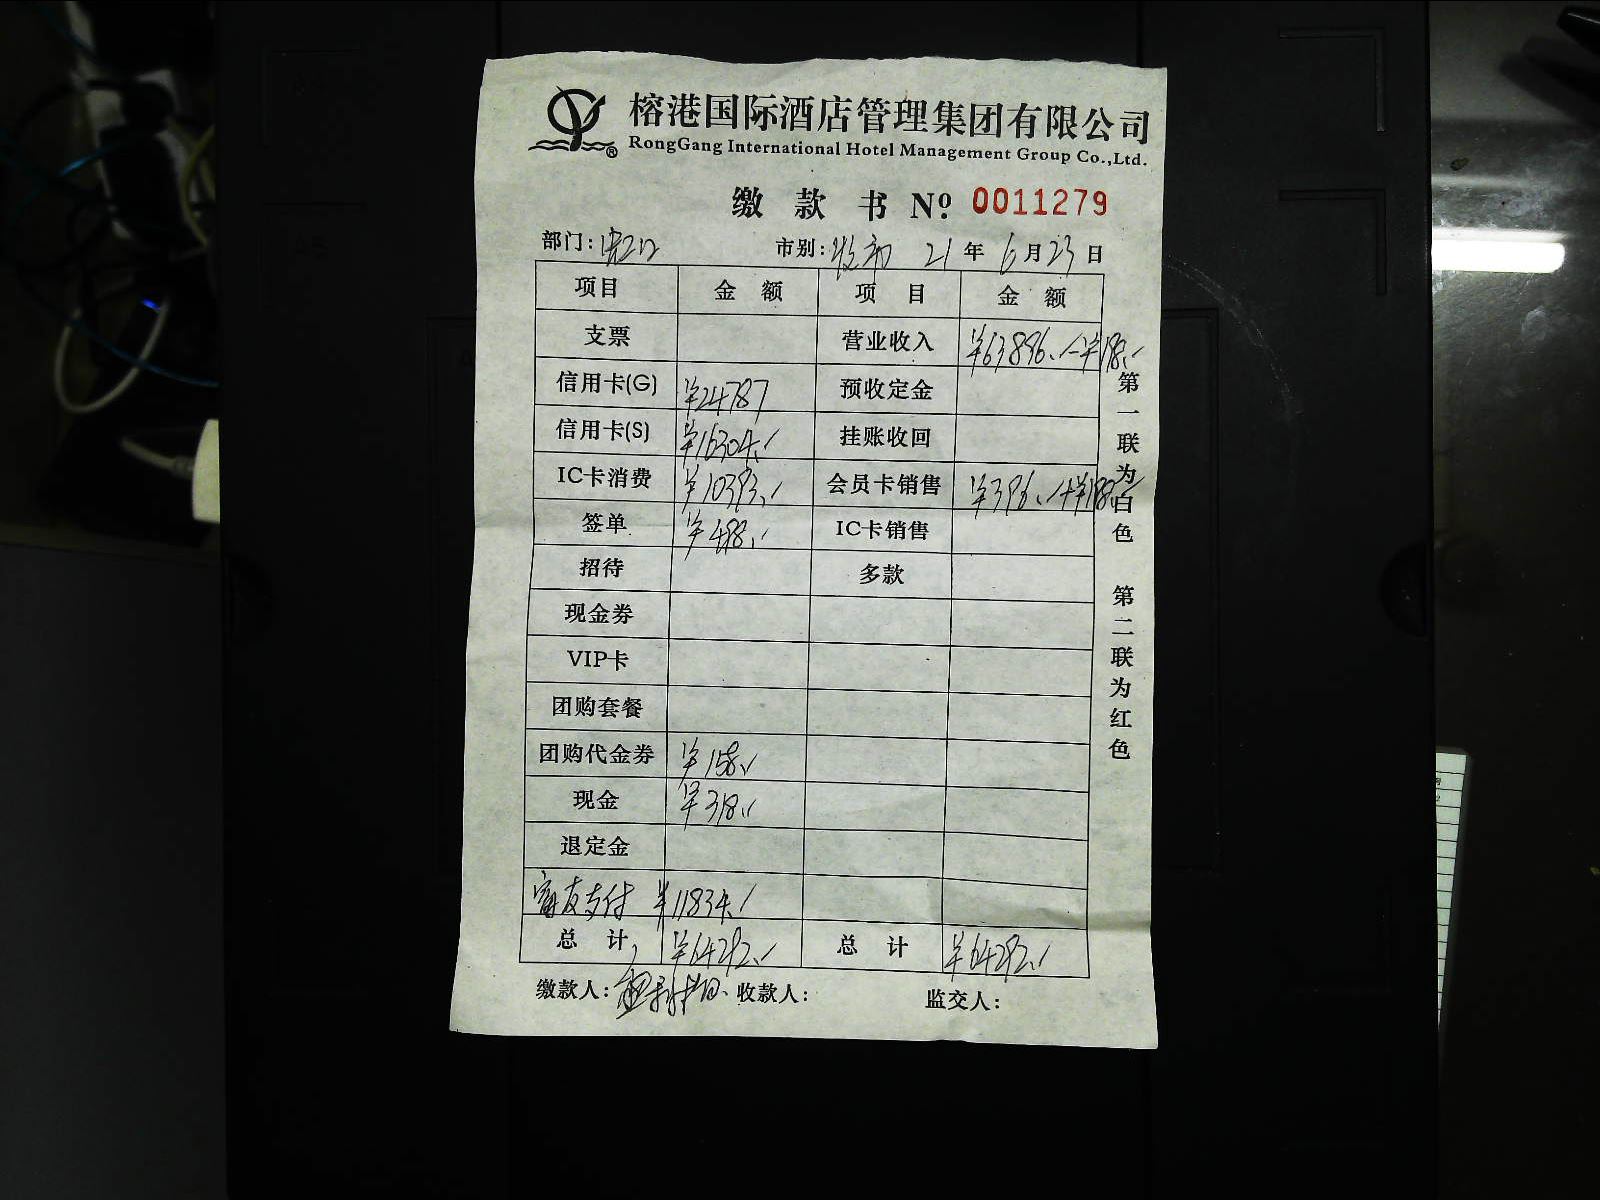 榕港国际酒店管理集团有限公司
RongGang International Hotel Management Group Co.,Ltd.
缴款书 Nº 0011279
部门: 市别: 21年6月23日
项目 金额 项目 金额
支票 营业收入 ¥63896.-¥198.
信用卡(G) ¥24787 预收定金
信用卡(S) ¥16304. 挂账收回
IC卡消费 ¥10393. 会员卡销售 ¥396.+¥198.
签单 ¥498. IC卡销售
招待 多款
现金券
VIP卡
团购套餐
团购代金券 ¥158.
现金 ¥318.
退定金
富友支付 ¥11834.
总计 ¥64292. 总计 ¥64292.
缴款人: 收款人: 监交人:
第一联为白色 第二联为红色